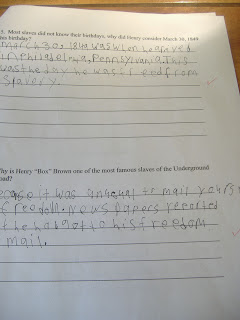 5. Most slaves did not know their birthdays, why did Henry consider March 30, 1849
his birthday?
March 30, 1849 was when he arived
in Philadelphia, Pennsylvania. This
was the day he was freed from
slavery.
Why is Henry "Box" Brown one of the most famous slaves of the Underground
it was unusual to mail yours
freedom. News papers reported
he had got to his freedom
mail.